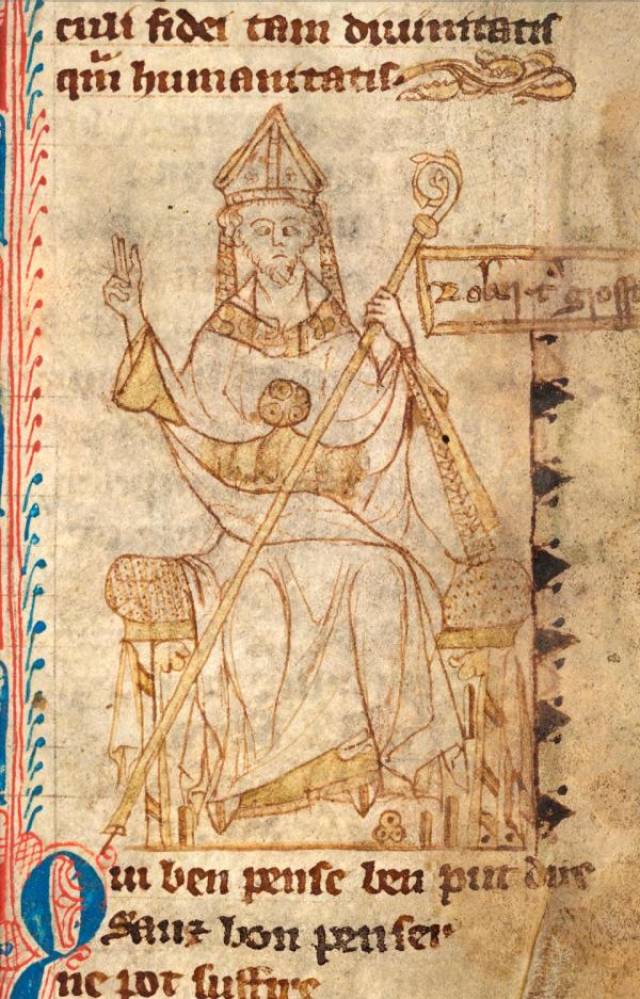 culi fidei tam diuinitatis
qm̄ humanitatis
Robꝰt gross
Qui ben pense ben put dire
Sanz bon penser
ne pot suffire